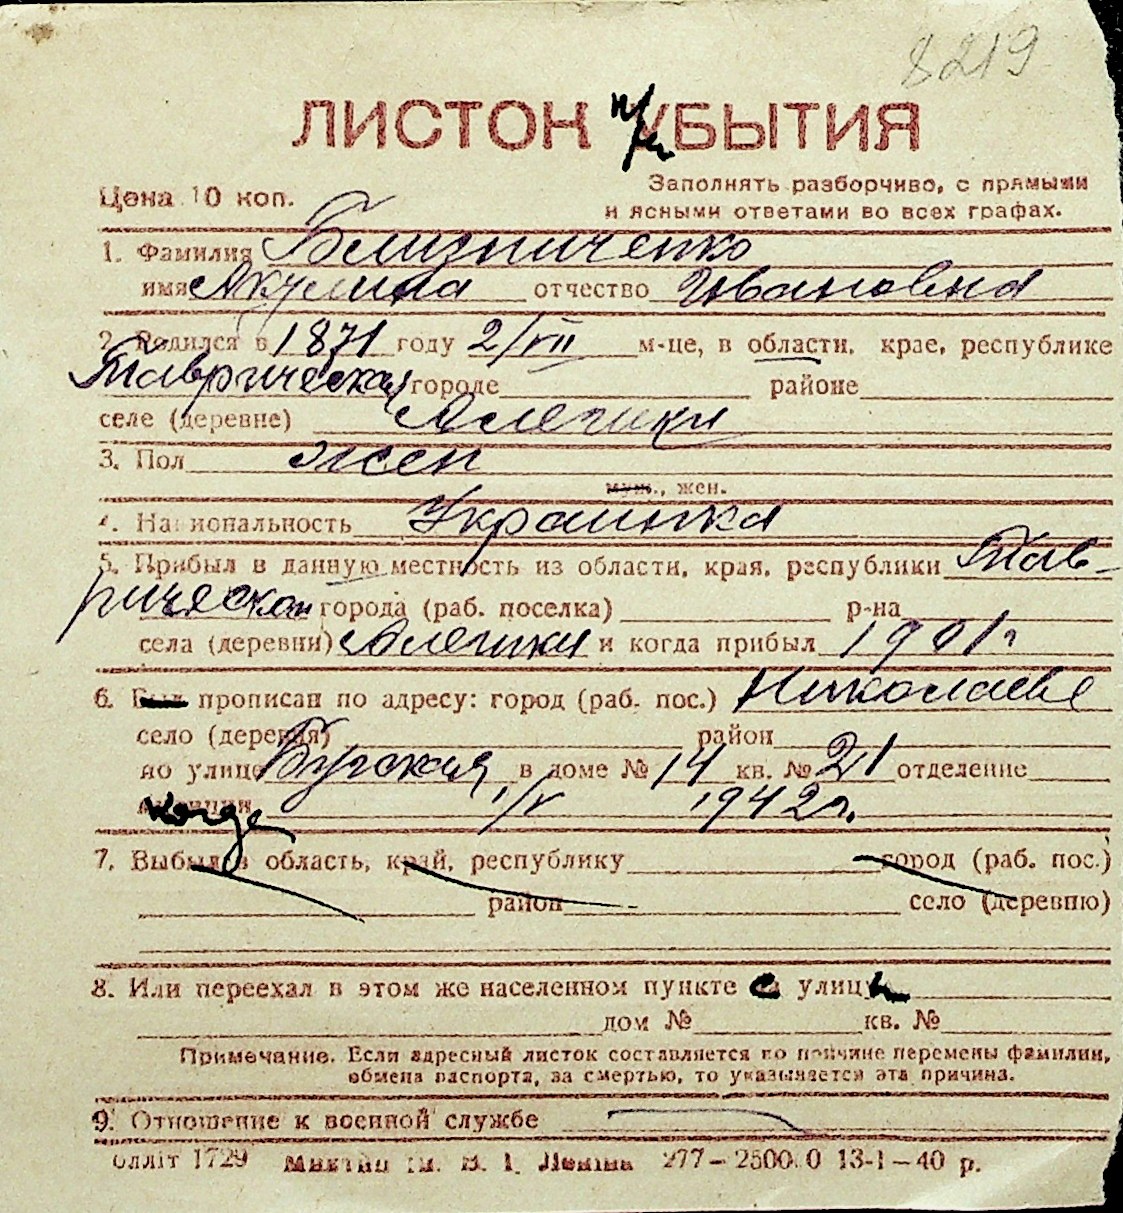 8219
ЛИСТОК УБЫТИЯ
Цена 10 коп.
Заполнять разборчиво, с прямыми
и ясными ответами во всех графах.
1. Фамилия Близниченко
имя Акулина отчество Ивановна
2. Родился в 1871 году 2/VII м-це, в области, крае, республике
Таврическая городе районе
селе (деревне) Алешки
3. Пол жен
муж., жен.
4. Национальность Украинка
5. Прибыл в данную местность из области, края, республики Тав-
рической города (раб. поселка) р-на
села (деревни) Алешки и когда прибыл 1901 г
6. Был прописан по адресу: город (раб. пос.) Николаеве
село (деревня) район
по улице Бугская в доме № 14 кв. № 21 отделение
когда 1/V 1942 г.
7. Выбыл в область, край, республику город (раб. пос.)
район село (деревню)
8. Или переехал в этом же населенном пункте с улицы
дом № кв. №
Примечание. Если адресный листок составляется по причине перемены фамилии,
обмена паспорта, за смертью, то указывается эта причина.
9. Отношение к военной службе
Олліт 1729 ім. В. І. Леніна 277—2500.0 13-1—40 р.